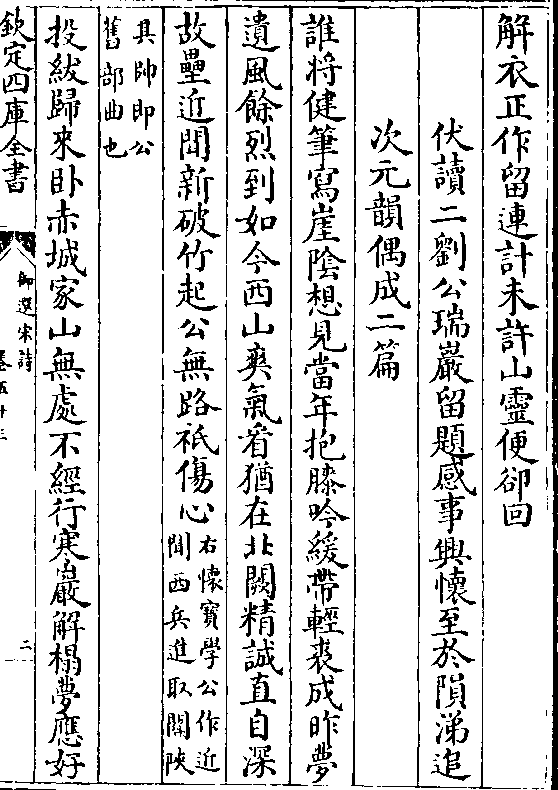 解衣正作留連計未許山靈便卻回
伏讀二劉公瑞巖留題感事興懷至於隕涕追
次元韻偶成二篇
誰將健筆寫崖陰想見當年抱膝吟緩帶輕裘成昨夢
遺風餘烈到如今西山爽氣看猶在北闕精誠直自深
故壘近聞新破竹起公無路祇傷心右懷寶學公作近
聞西兵進取關陜
其帥即公
舊部曲也
投紱歸來卧赤城家山無處不經行寒巖解榻夢應好
欽定四庫全書
御選宋詩
卷五十三
二